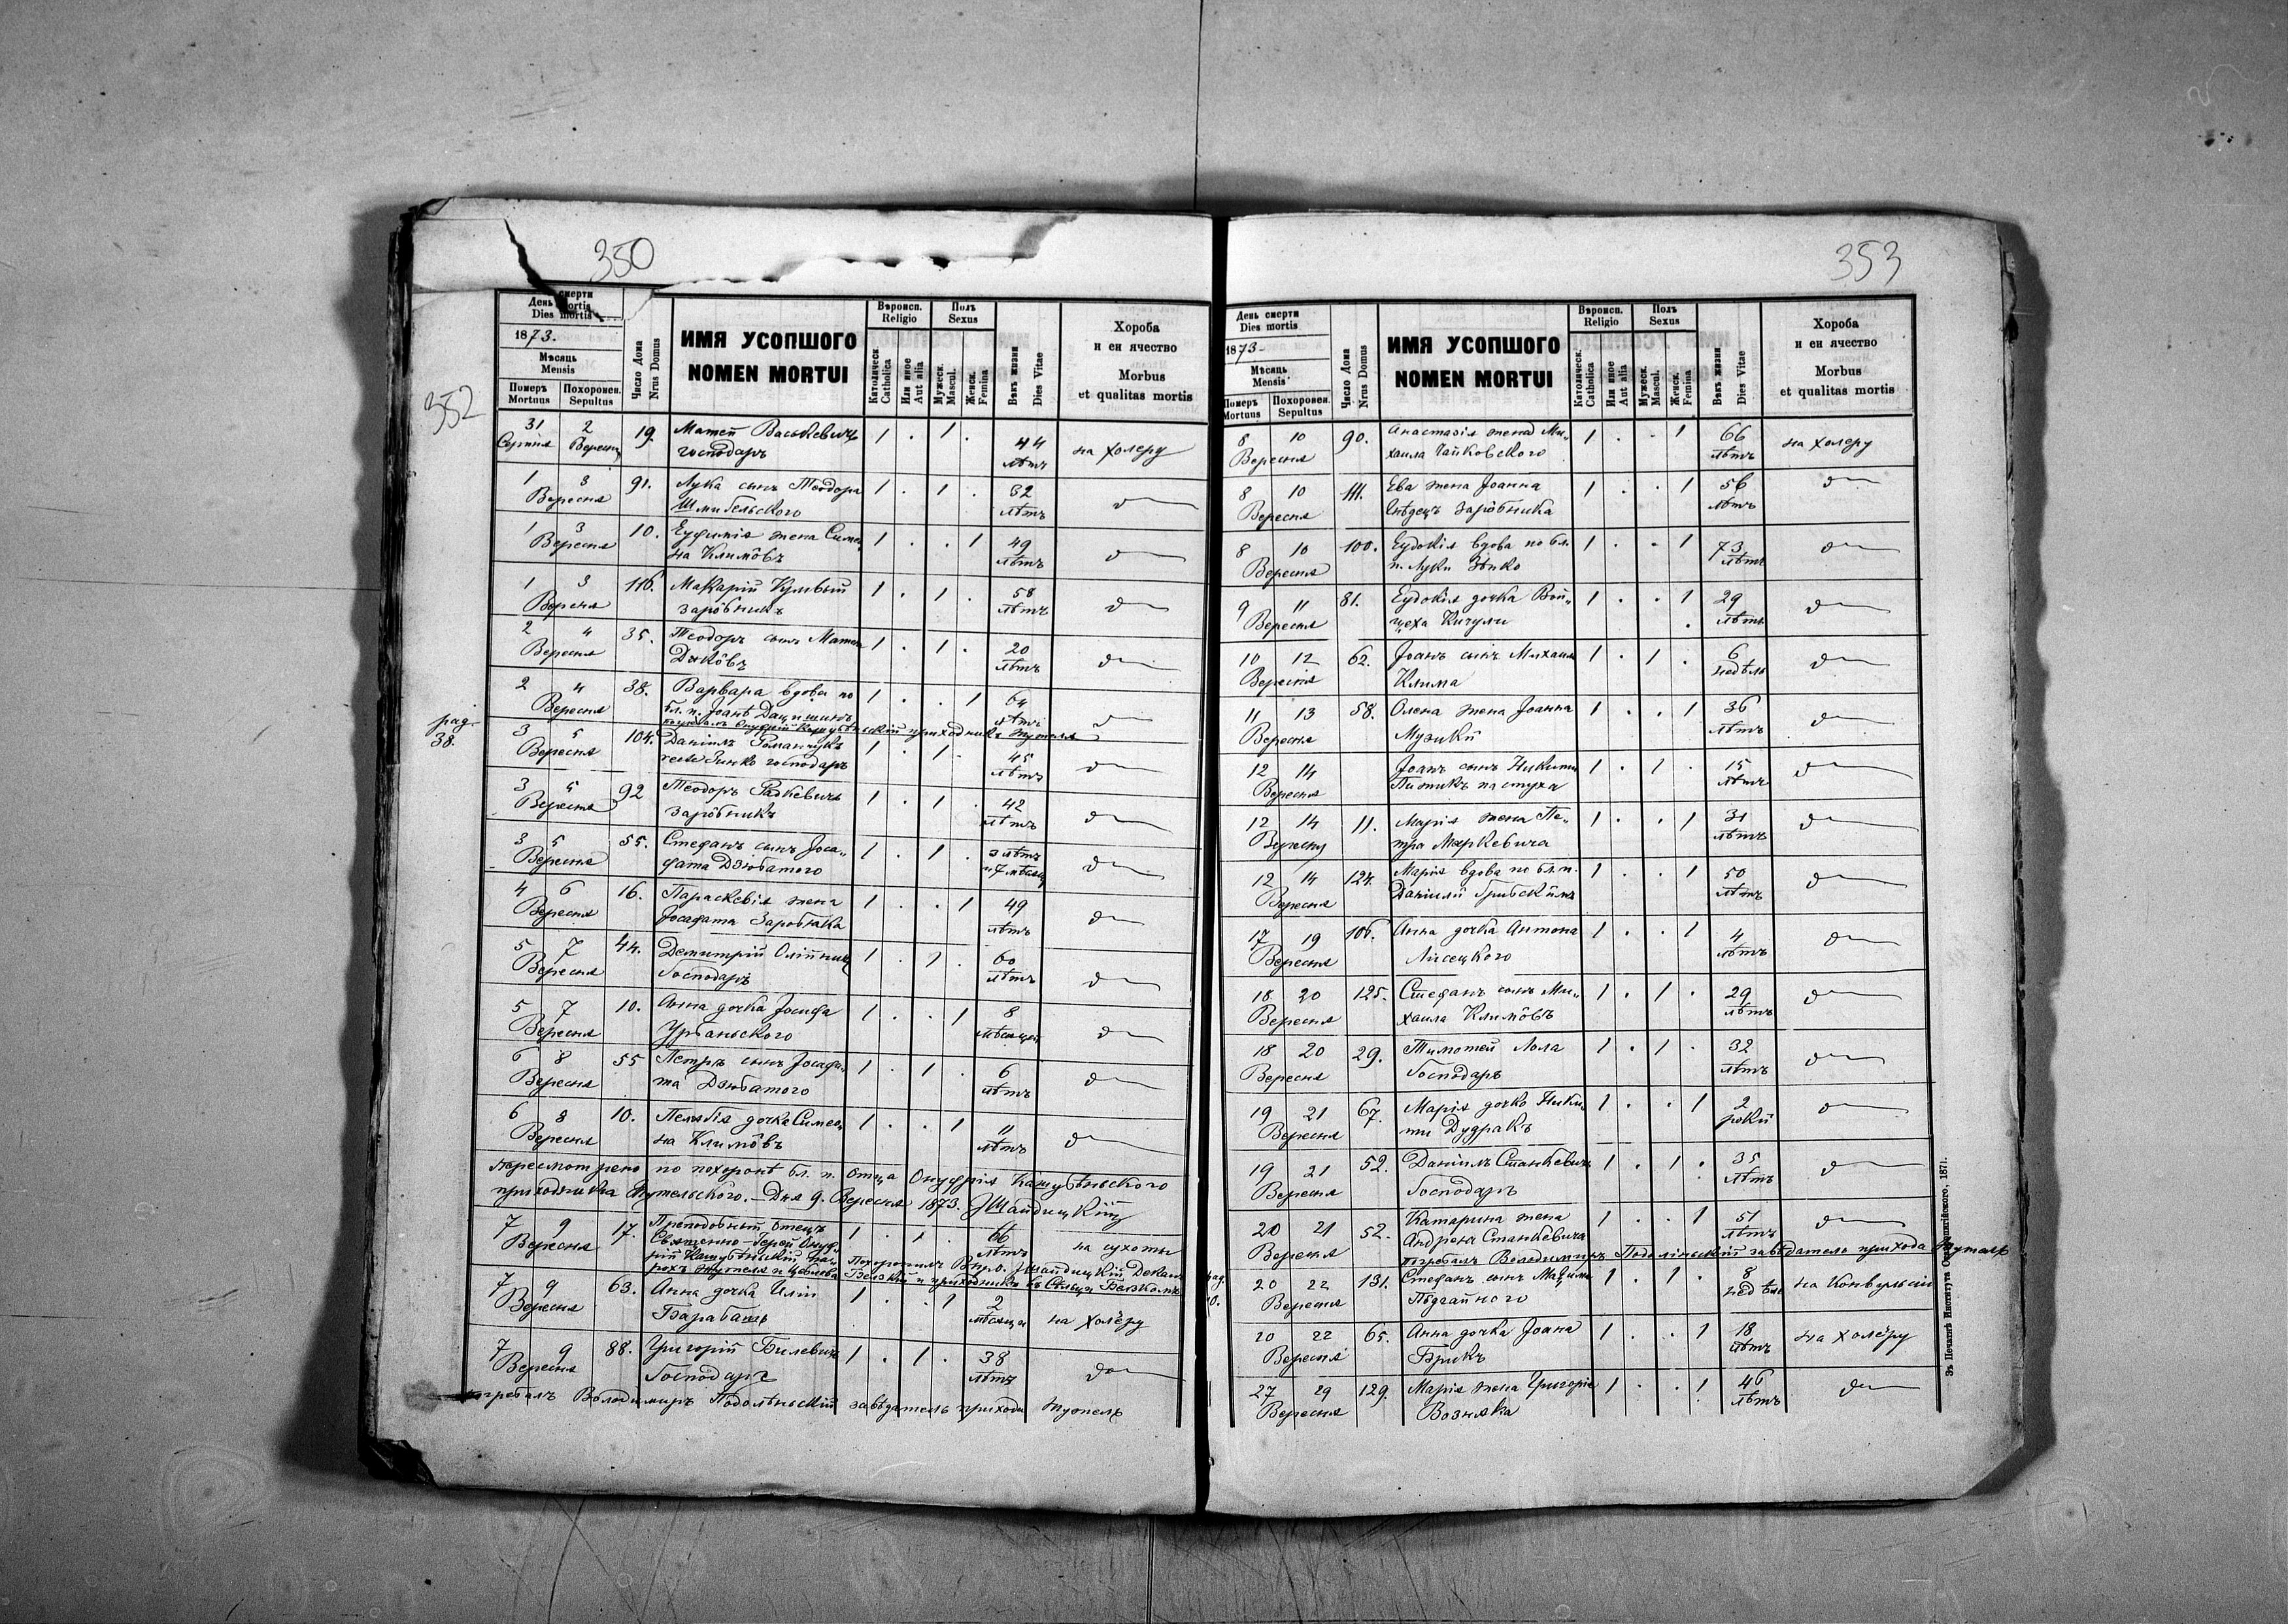 350
352
День смерти
Dies mortis
1873.
Мѣсяць
Mensis
Померъ
Mortuus
Похоронен.
Sepultus
Число Дома
Nrus Domus
ИМЯ УСОПШОГО
NOMEN MORTUI
Вѣроисп.
Religio
Католическ.
Catholica
Или иное
Aut alia
Полъ
Sexus
Мужеск.
Mascul.
Женск.
Femina
Вѣкъ жизни
Dies Vitae
Хороба
и еи ячество
Morbus
et qualitas mortis
31 2 19. Матей Васькевичъ 1 . 1 . 44
Серпня Вересня господаръ лѣтъ на холеру
1 3 91. Лука сынъ Теодора 1 . 1 . 32
Вересня Шмибельского лѣтъ
1 3 10. Еуфимія жена Симео
Вересня на Климôвъ 1 . . 1 49 лѣтъ
1 3 116. Макарій 1 . 1 . 58
Вересня зарôбникъ лѣтъ
2 4 35. Теодоръ сынъ Матея 1 . 1 . 20
Вересня лѣтъ
2 4 38. Варвара вдова по 1 . . 1 64
Вересня бл. п. Іоанѣ Дацишинъ лѣтъ
pag.
38.
3 5 104. Даніилъ Романчукъ 1 . 1 . 45
Вересня господаръ лѣтъ
3 5 92 Теодоръ Радкевичъ 1 . 1 . 42
Вересня зарôбникъ лѣтъ
3 5 55. Стефанъ сынъ Іоса„ 1 . 1 . 3 лѣтъ
Вересня фата Дзюбатого
4 6 16. Параскевія жена 1 . . 1 49
Вересня Іосафата лѣтъ
5 7 44. Демитрій Олійникъ 1 . 1 . 60
Вересня Господаръ лѣтъ
5 7 10. Анна дочка Іосифа 1 . . 1 8
Вересня Урбаньского мѣсяцей
6 8 55 Петръ сынъ Іосафа„ 1 . 1 . 6
Вересня та Дзюбатого лѣтъ
6 8 10. Пелагія дочка Симео„ 1 . . 1 11
Вересня на Климôвъ лѣтъ
по похоронѣ бл. п. Отца Онуфрія
приходника Жупельского. — Дня 9. Вересня 1873.
7 9 17. Преподобный Отецъ 1 . 1 . 66
Вересня лѣтъ на сухоты
7 9 63. Анна дочка Иліи 1 . . 1 2
Вересня Барабашъ мѣсяци на холеру
7 9 88. Григорій Билевичъ 1 . 1 . 38
Вересня Господаръ лѣтъ
погребалъ Володимиръ Подолѣньскій завѣдатель прихода Жупелъ
353
День смерти
Dies mortis
1873.
Мѣсяць
Mensis
Померъ
Mortuus
Похоронен.
Sepultus
Число Дома
Nrus Domus
ИМЯ УСОПШОГО
NOMEN MORTUI
Вѣроисп.
Religio
Католическ.
Catholica
Или иное
Aut alia
Полъ
Sexus
Мужеск.
Mascul.
Женск.
Femina
Вѣкъ жизни
Dies Vitae
Хороба
и еи ячество
Morbus
et qualitas mortis
8 10 90. Анастазія жена Ми„ 1 . . 1 66
Вересня хаила Чайковского лѣтъ на холеру
8 10 111. Ева жена Іоанна 1 . . 1 56
Вересня зарôбника лѣтъ
8 10 100. Еудокія вдова по бл. 1 . . 1 73
Вересня п. Луки лѣтъ
9 11 81. Еудокія дочка Вой„ 1 . . 1 29
Вересня цеха Кичули лѣтъ
10 12 62. Іоанъ сынъ Михаила 1 . 1 . 6
Вересня Клима недѣль
11 13 58. Олена жена Іоанна 1 . . 1 36
Вересня Музики лѣтъ
12 14 Іоанъ сынъ Никиты 1 . 1 . 15
Вересня пастуха лѣтъ
12 14 11. Марія жена Пе„ 1 . . 1 31
Вересня тра Маркевича лѣтъ
12 14 124. Марія вдова по бл. п. 1 . . 1 50
Вересня Даніилѣ лѣтъ
17 19 106. Анна дочка Антона 1 . . 1 4
Вересня Лисецкого лѣтъ
18 20 125. Стефанъ сынъ Ми„ 1 . 1 . 29
Вересня хаила Климôвъ лѣтъ
18 20 29. Тимотей Лола 1 . 1 . 32
Вересня Господаръ лѣтъ
19 21 67. Марія дочка Ники„ 1 . . 1 2
Вересня ты Дудракъ роки
19 21 52. Даніилъ Станкевичъ 1 . 1 . 35
Вересня Господаръ лѣтъ
20 21 52. Катарина жена 1 . . 1 51
Вересня Андрея Станкевича лѣтъ
погребалъ Володимиръ Подолѣньскій завѣдатель прихода Жупелъ
20 22 131. Стефанъ сынъ 1 . 1 . 8
Вересня недѣль на конвульсіи
20 22 65. Анна дочка Іоана 1 . . 1 18
Вересня Брикъ лѣтъ на холеру
27 29 129. Марія жена Григорія 1 . . 1 46
Вересня Возняка лѣтъ
Зъ Печатнѣ Института Ставропигійского, 1871.